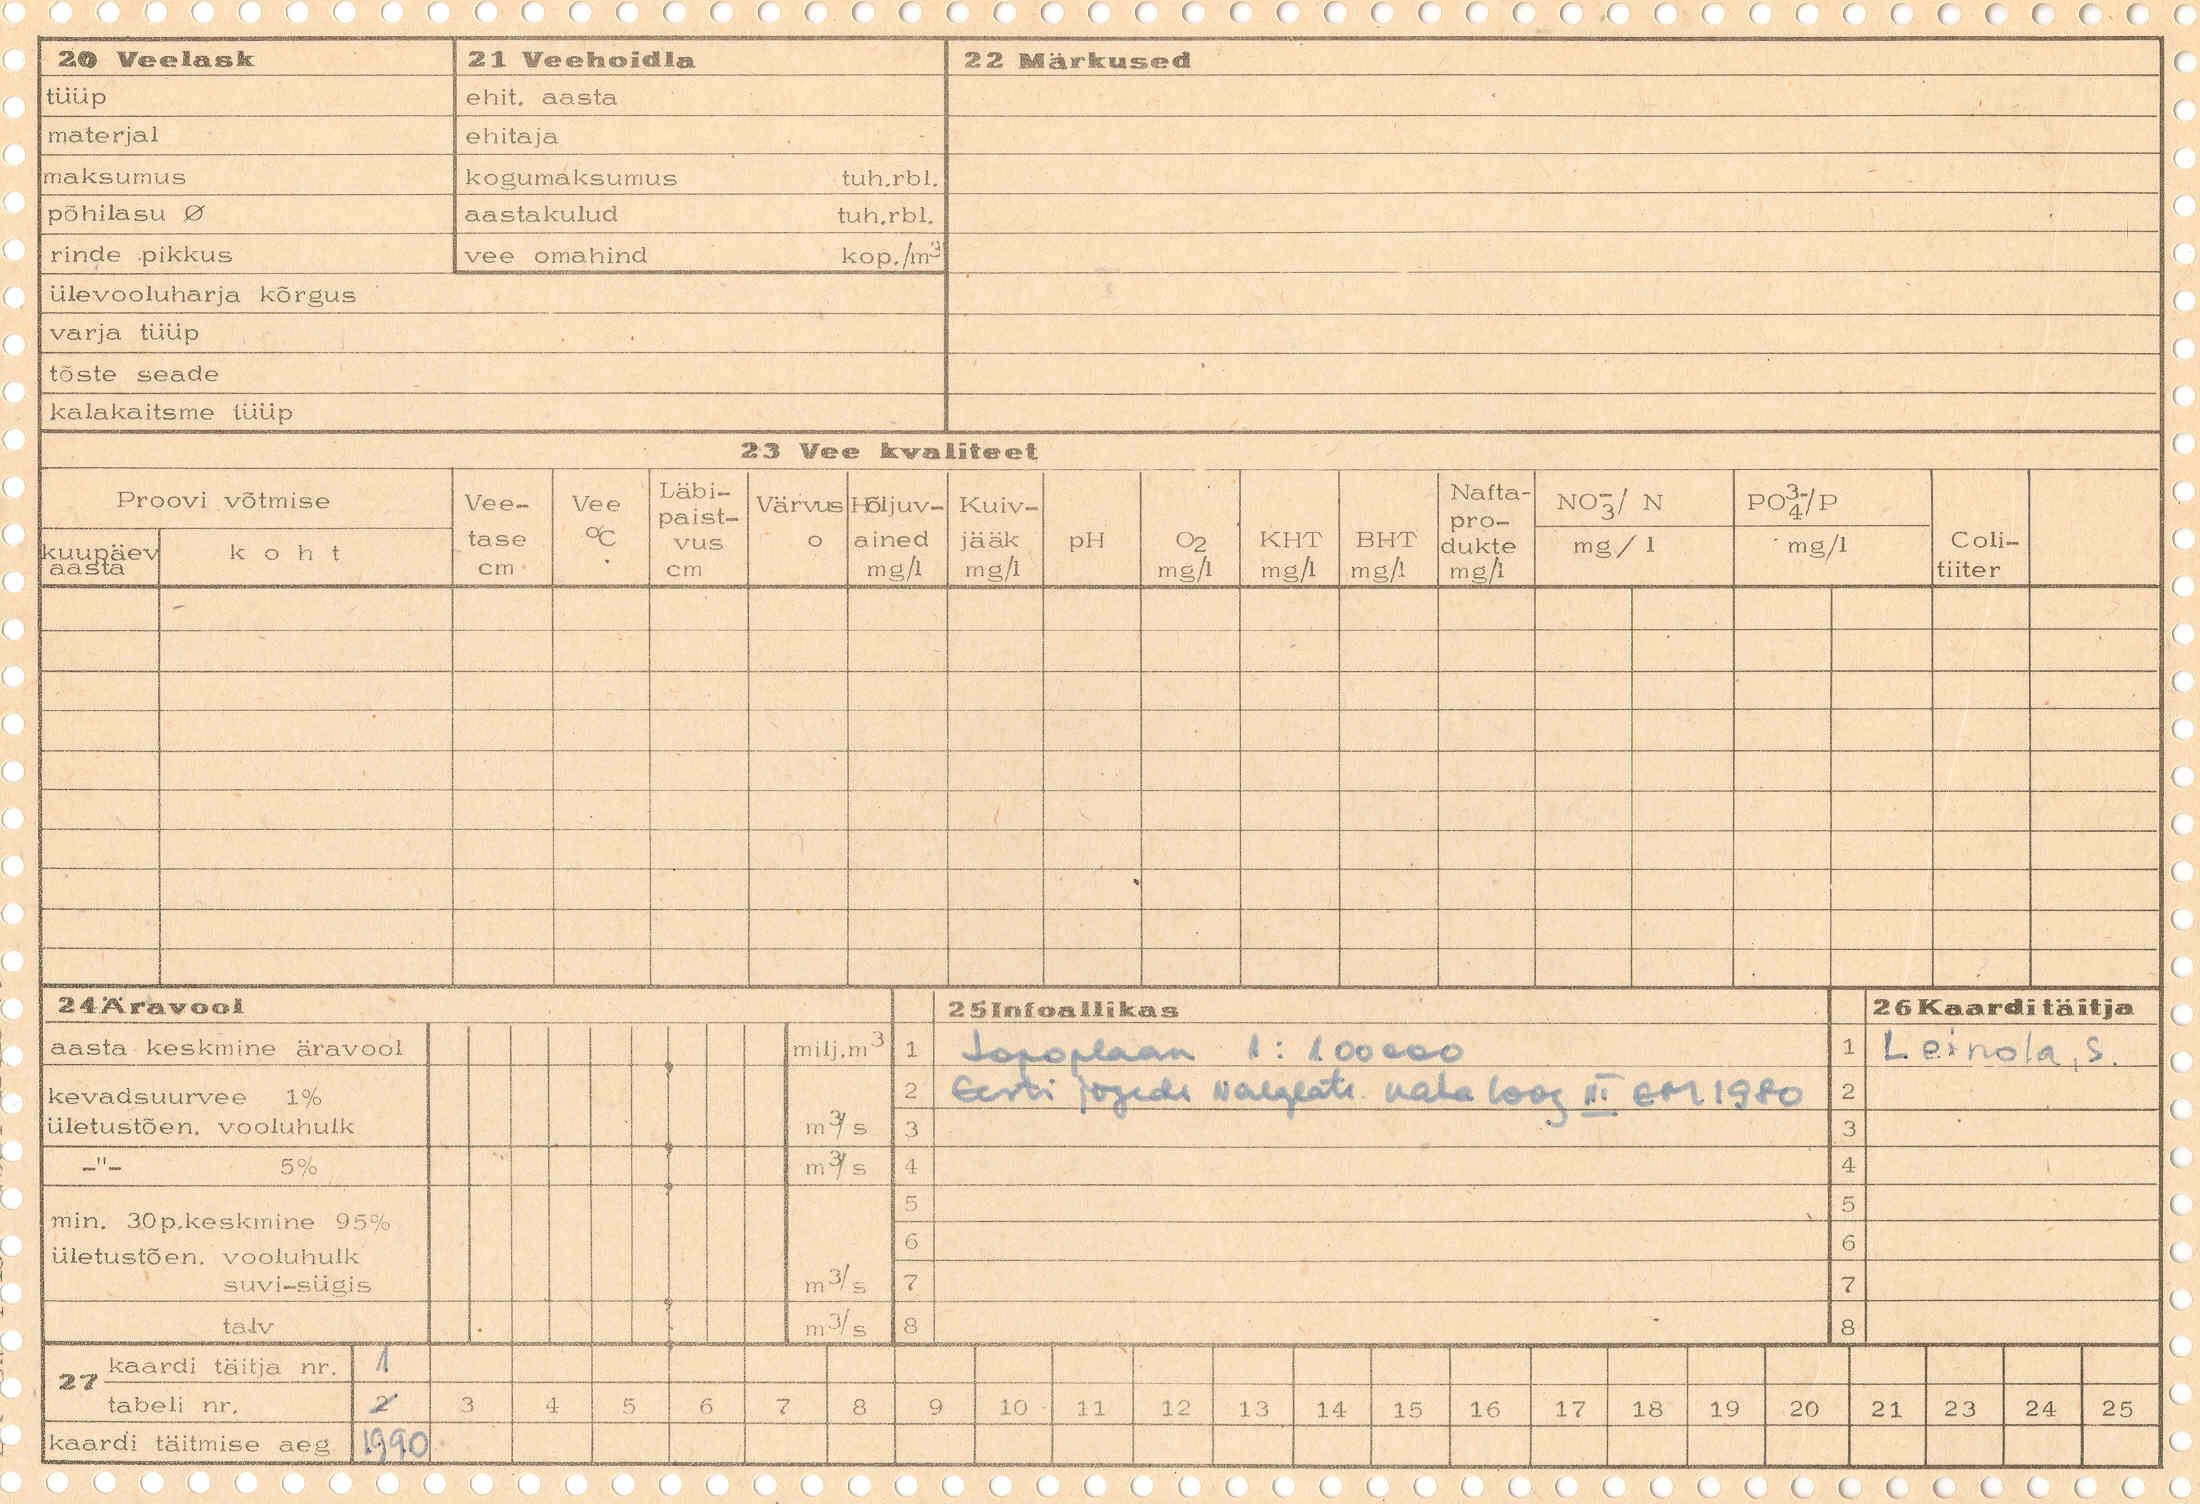 20 Veelask
tüüp
materjal
maksumus
põhilasu Ø
rinde pikkus
ülevooluharja kõrgus
varja tüüp
tõste seade
kalakaitsme tüüp
21 Veehoidla
ehit. aasta
ehitaja
kogumaksumus tuh.rbl.
aastakulud tuh.rbl.
vee omahind kop./m³
22 Märkused
23 Vee kvaliteet
Proovi võtmise
kuupäev aasta
koht
Vee-
tase
cm
Vee
°C
Läbi-
paist-
vus
cm
Värvus
o
Hõljuv-
ained
mg/l
Kuiv-
jääk
mg/l
pH
O₂
mg/l
KHT
mg/l
BHT
mg/l
Nafta-
pro-
dukte
mg/l
NO₃⁻/ N
mg/l
PO₄³⁻/P
mg/l
Coli-
tiiter
24 Äravool
aasta keskmine äravool milj.m³
kevadsuurvee 1%
ületustõen. vooluhulk m³/s
-"- 5% m³/s
min. 30p.keskmine 95%
ületustõen. vooluhulk
suvi-sügis m³/s
talv m³/s
25 Infoallikas
1 Topoplaan 1:100000
2 Eesti jõgede kataloog III 1980
3
4
5
6
7
8
26 Kaarditäitja
1 Leinola, S.
2
3
4
5
6
7
8
27
kaardi täitja nr. 1
tabeli nr. 2 3 4 5 6 7 8 9 10 11 12 13 14 15 16 17 18 19 20 21 23 24 25
kaardi täitmise aeg 1990